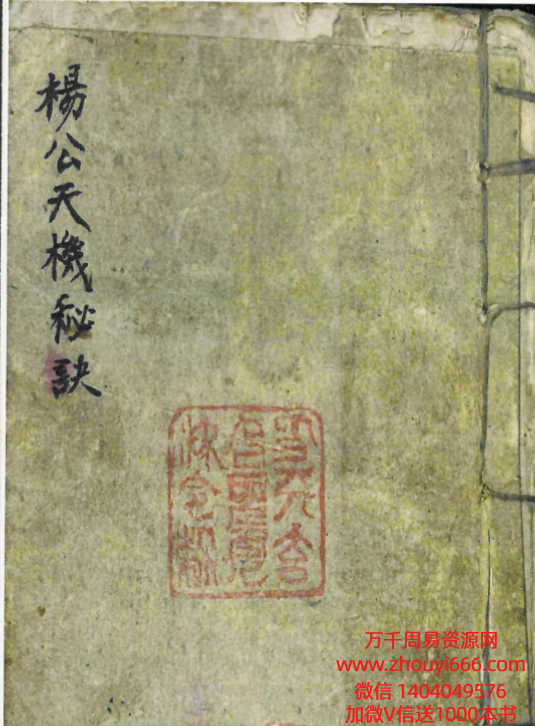 楊公天機秘訣
万千周易资源网
www.zhouyi666.com
微信 1404049576
加微V信送1000本书